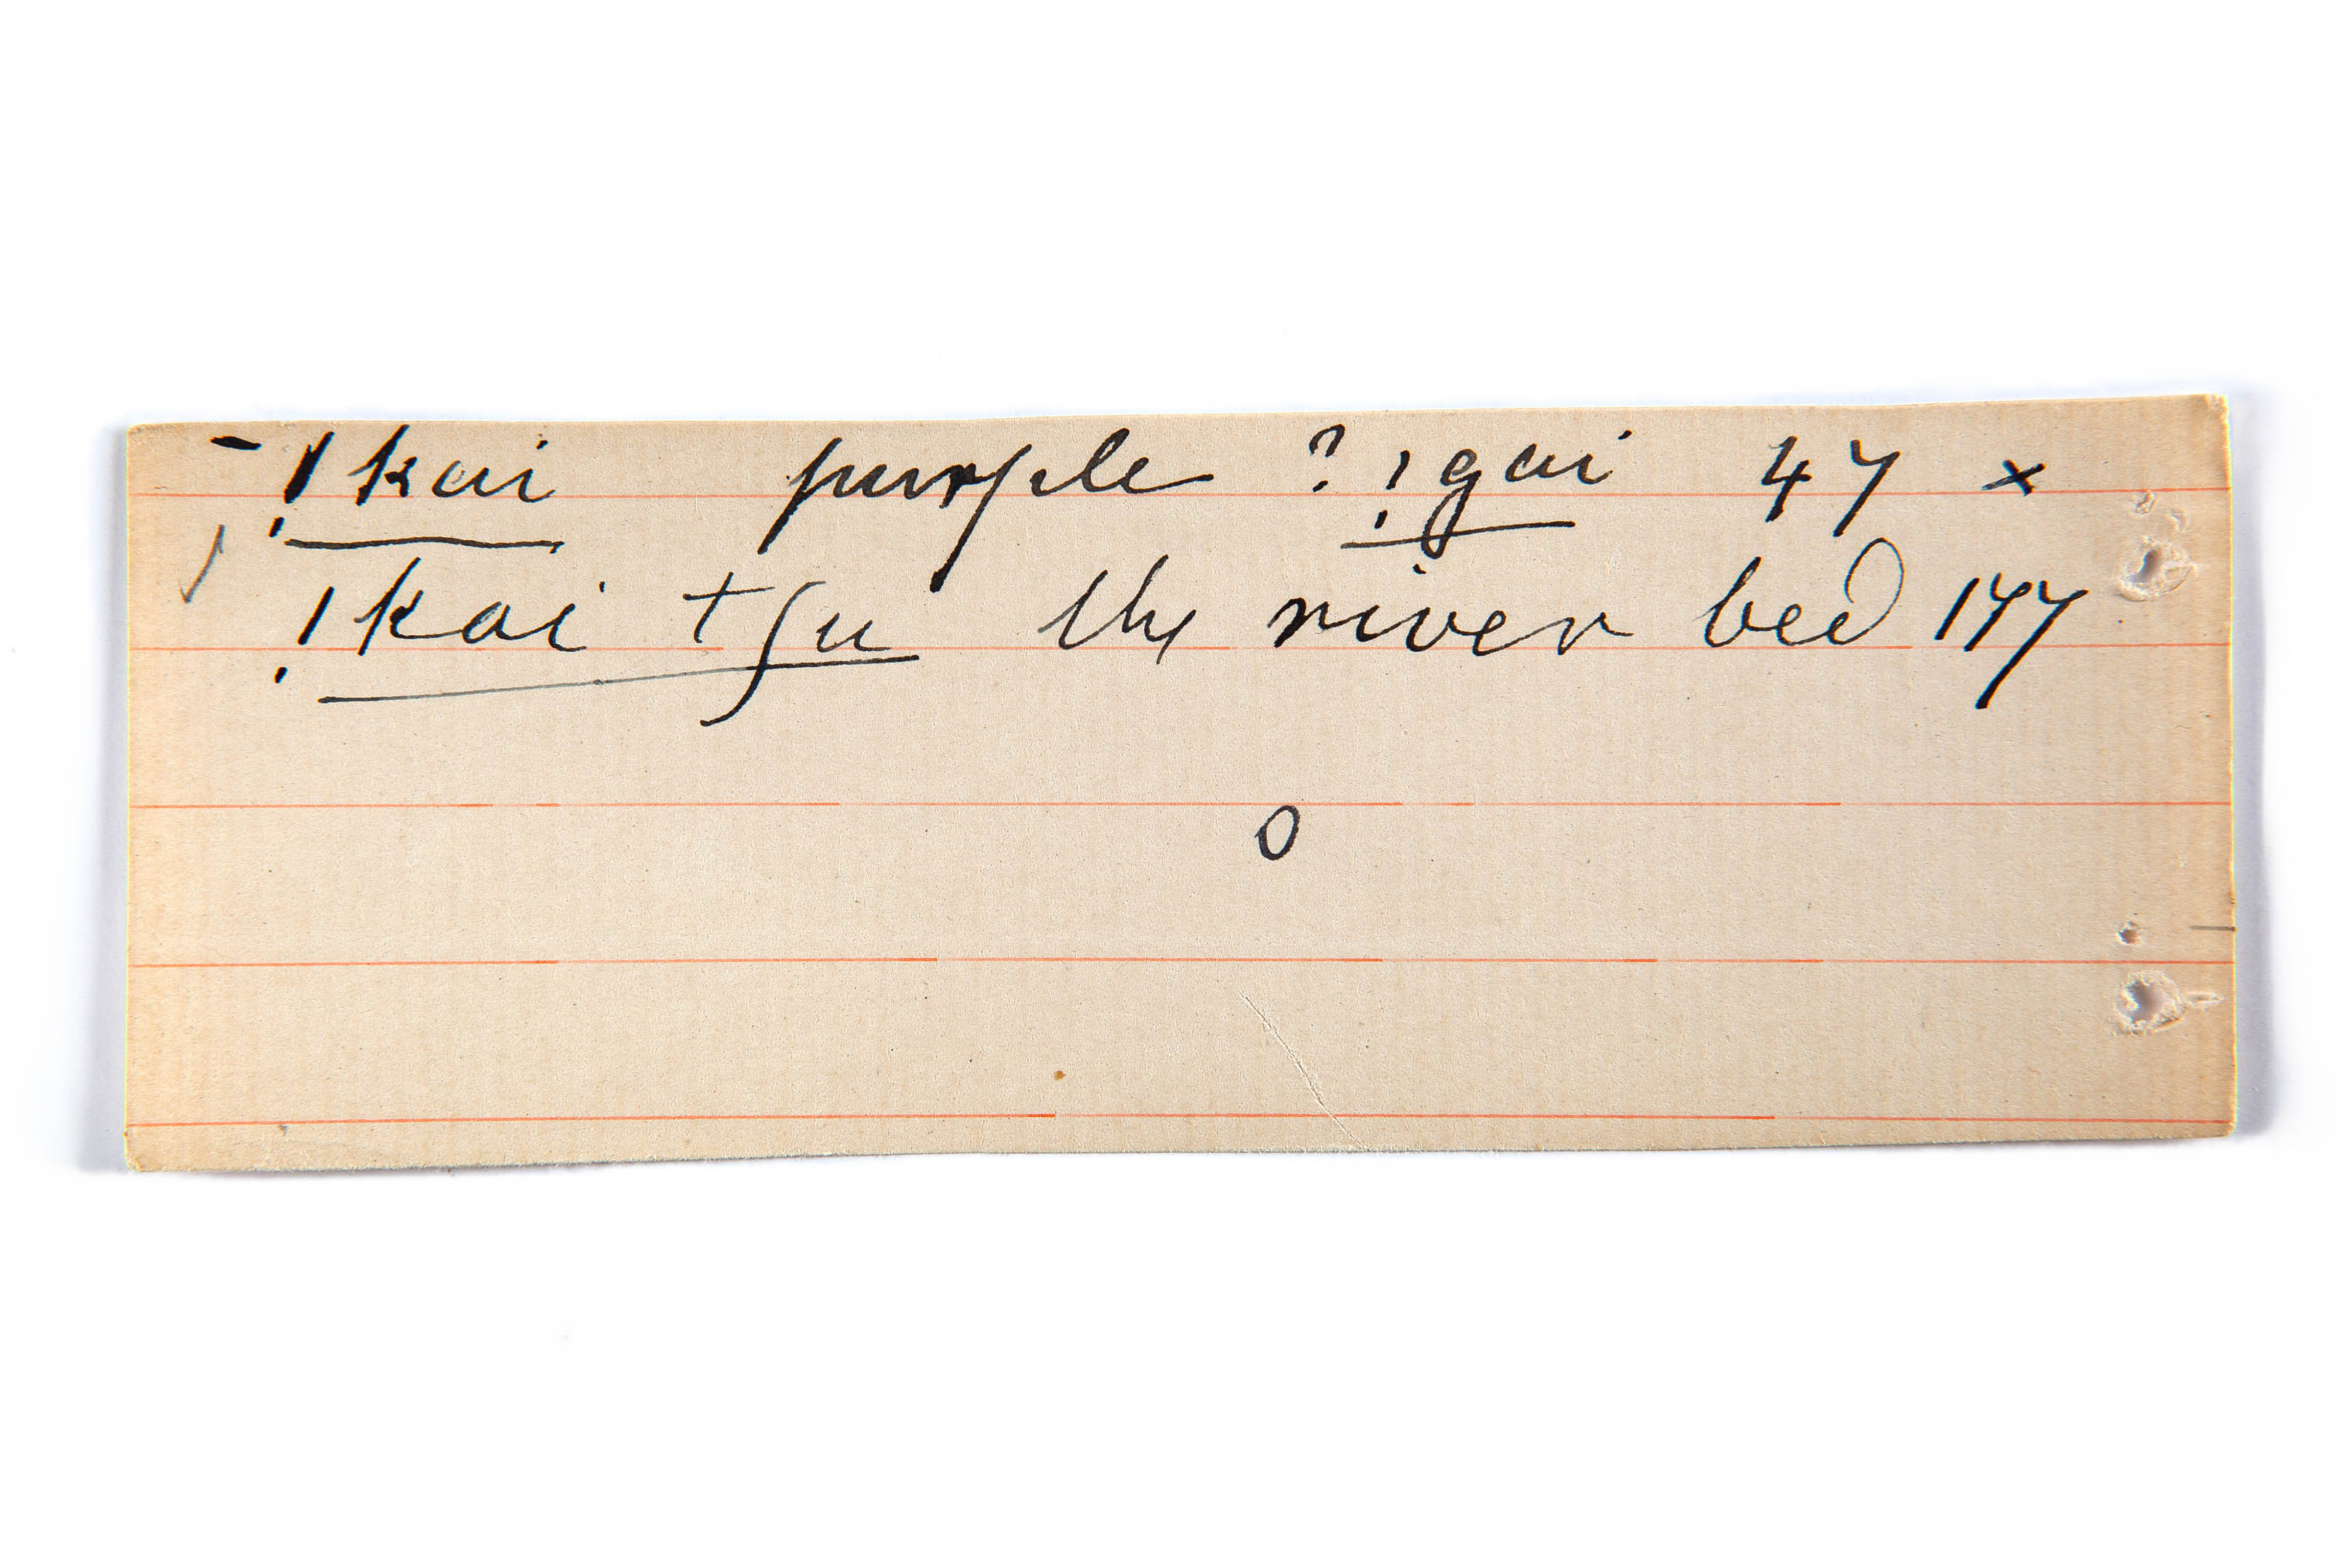 – !kai purple ? !gai 47 x
!kai tʃu the river bed 177
0